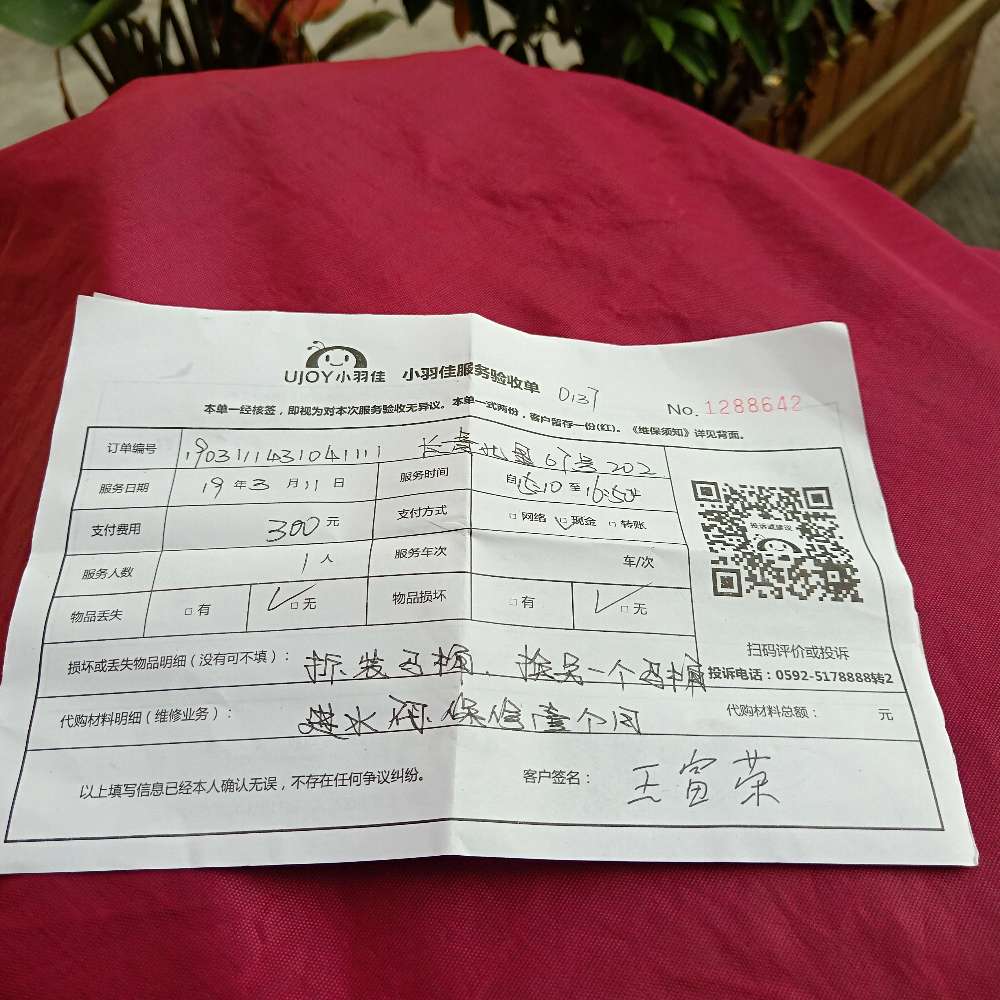 UJOY小羽佳 小羽佳服务验收单 0137 No. 1288642
本单一经核签，即视为对本次服务验收无异议。本单一式两份，客户留存一份(红)。《维保须知》详见背面。
订单编号 1903111431041111 67号202
服务日期 19年3月11日 服务时间 自15:10至16:50
支付费用 300元 支付方式 □网络 □现金 □转账
服务人数 1人 服务车次 车/次
物品丢失 □有 □无 物品损坏 □有 □无
投诉或建议
扫码评价或投诉
投诉电话：0592-5178888转2
损坏或丢失物品明细（没有可不填）： 拆装马桶. 换另一个马桶
代购材料明细（维修业务）： 进水阀.保修壹个月 代购材料总额： 元
以上填写信息已经本人确认无误，不存在任何争议纠纷。 客户签名： 王富荣